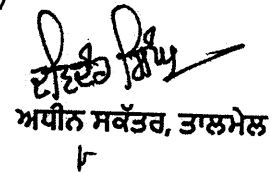 ਦਵਿੰਦਰ ਸਿੰਘ
ਅਧੀਨ ਸਕੱਤਰ, ਤਾਲਮੇਲ